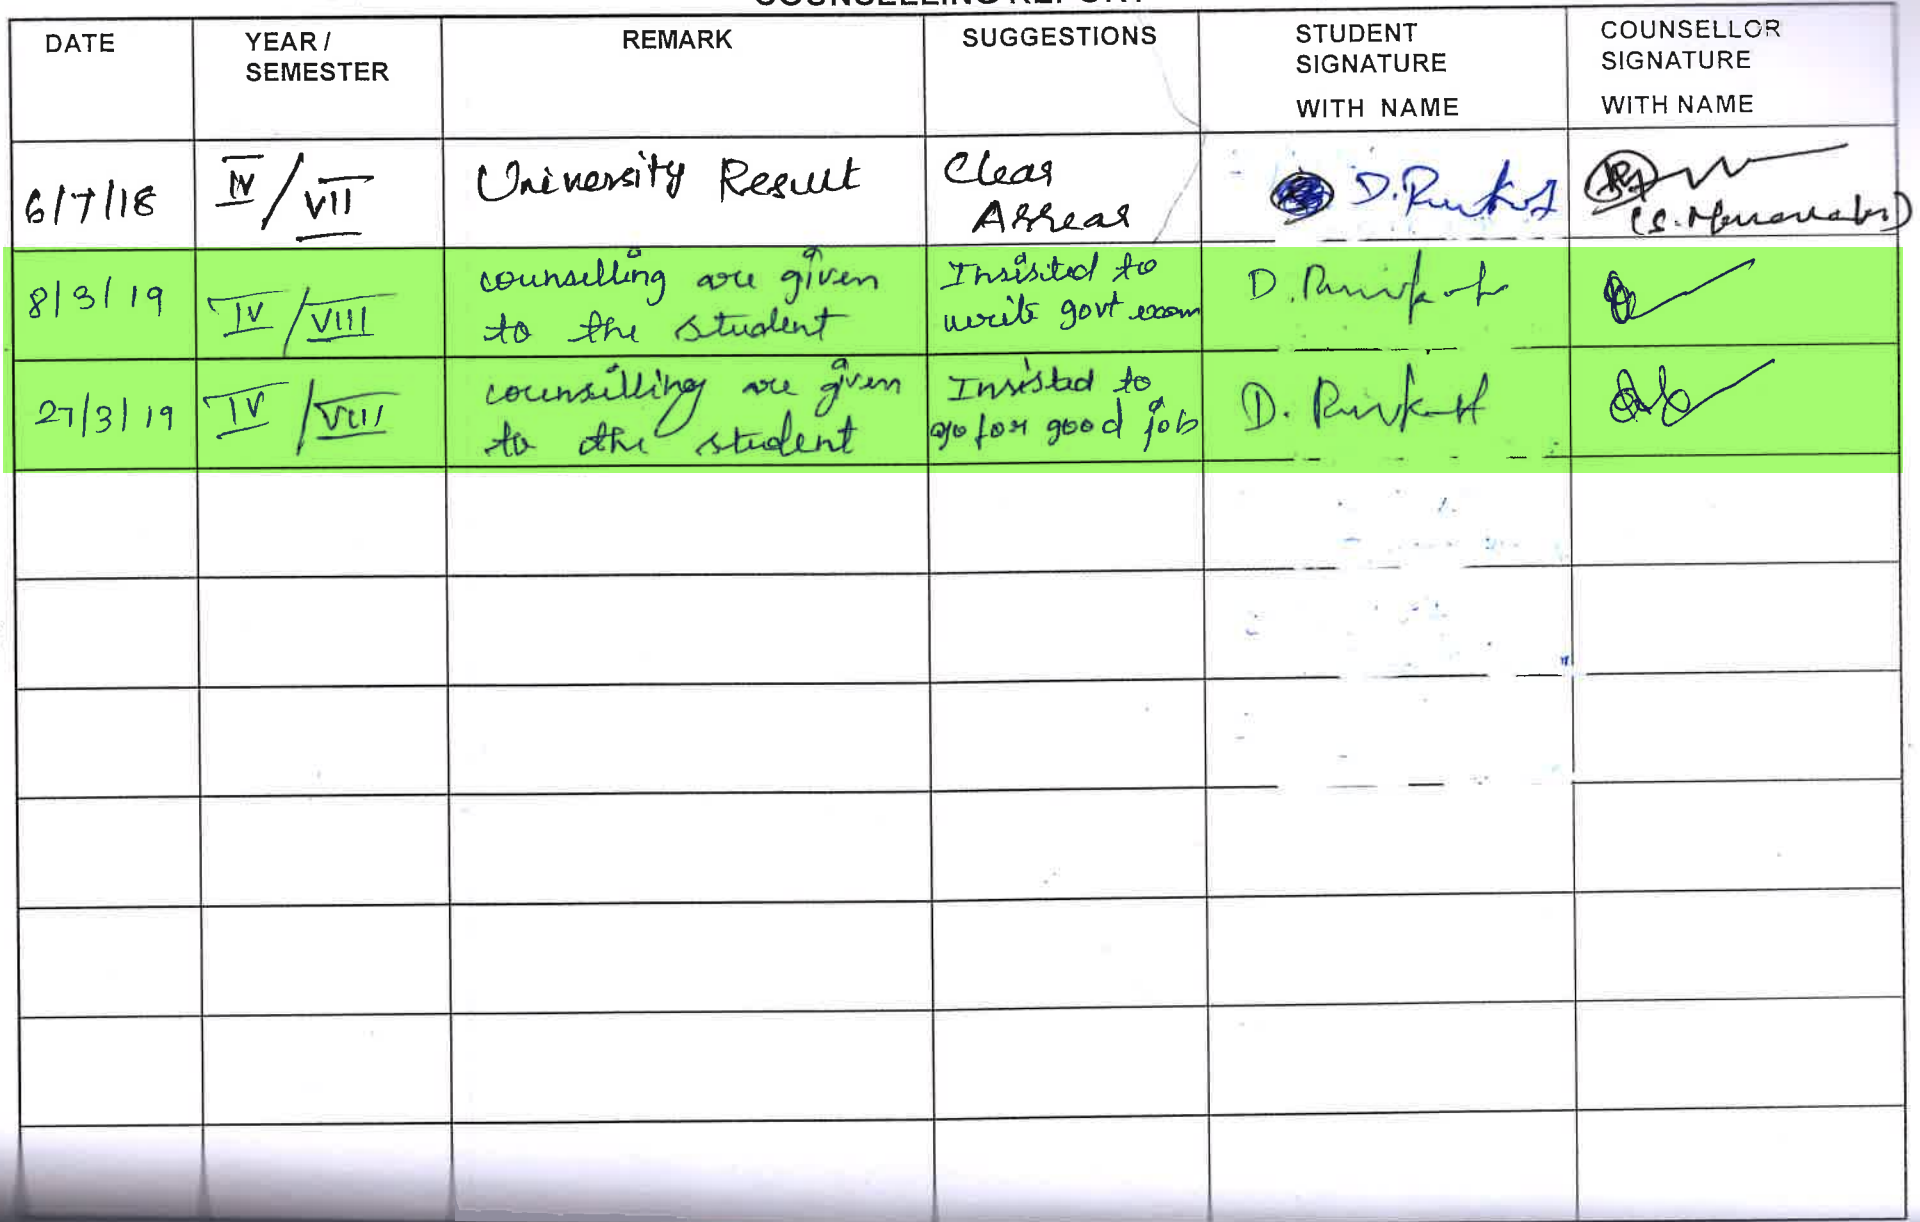 COUNSELLING REPORT
DATE YEAR / SEMESTER REMARK SUGGESTIONS STUDENT SIGNATURE WITH NAME COUNSELLOR SIGNATURE WITH NAME
6/7/18 IV/VII University Result Clear Arrear D.
8/3/19 IV/VIII counselling are given to the student Insisited to write govt exam D.
27/3/19 IV/VIII counsilling are given to the student Insisted to go for good job D.